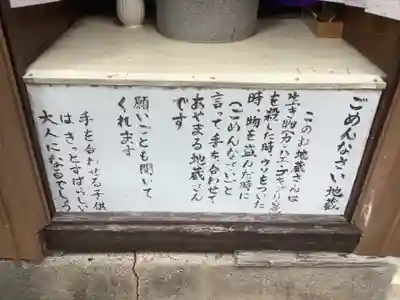 ごめんなさい地蔵
このお地蔵さんは
生き物カ・ハエ・ゴキブリ等
を殺した時、ウソをついた
時、物を盗んだ時に
(ごめんなさい)と
言って手を合わせて
おやまる地蔵さん
です
願いごとも聞いて
くれます
手を合わせる子供
は、きっとすばらしい
大人になるでしょう